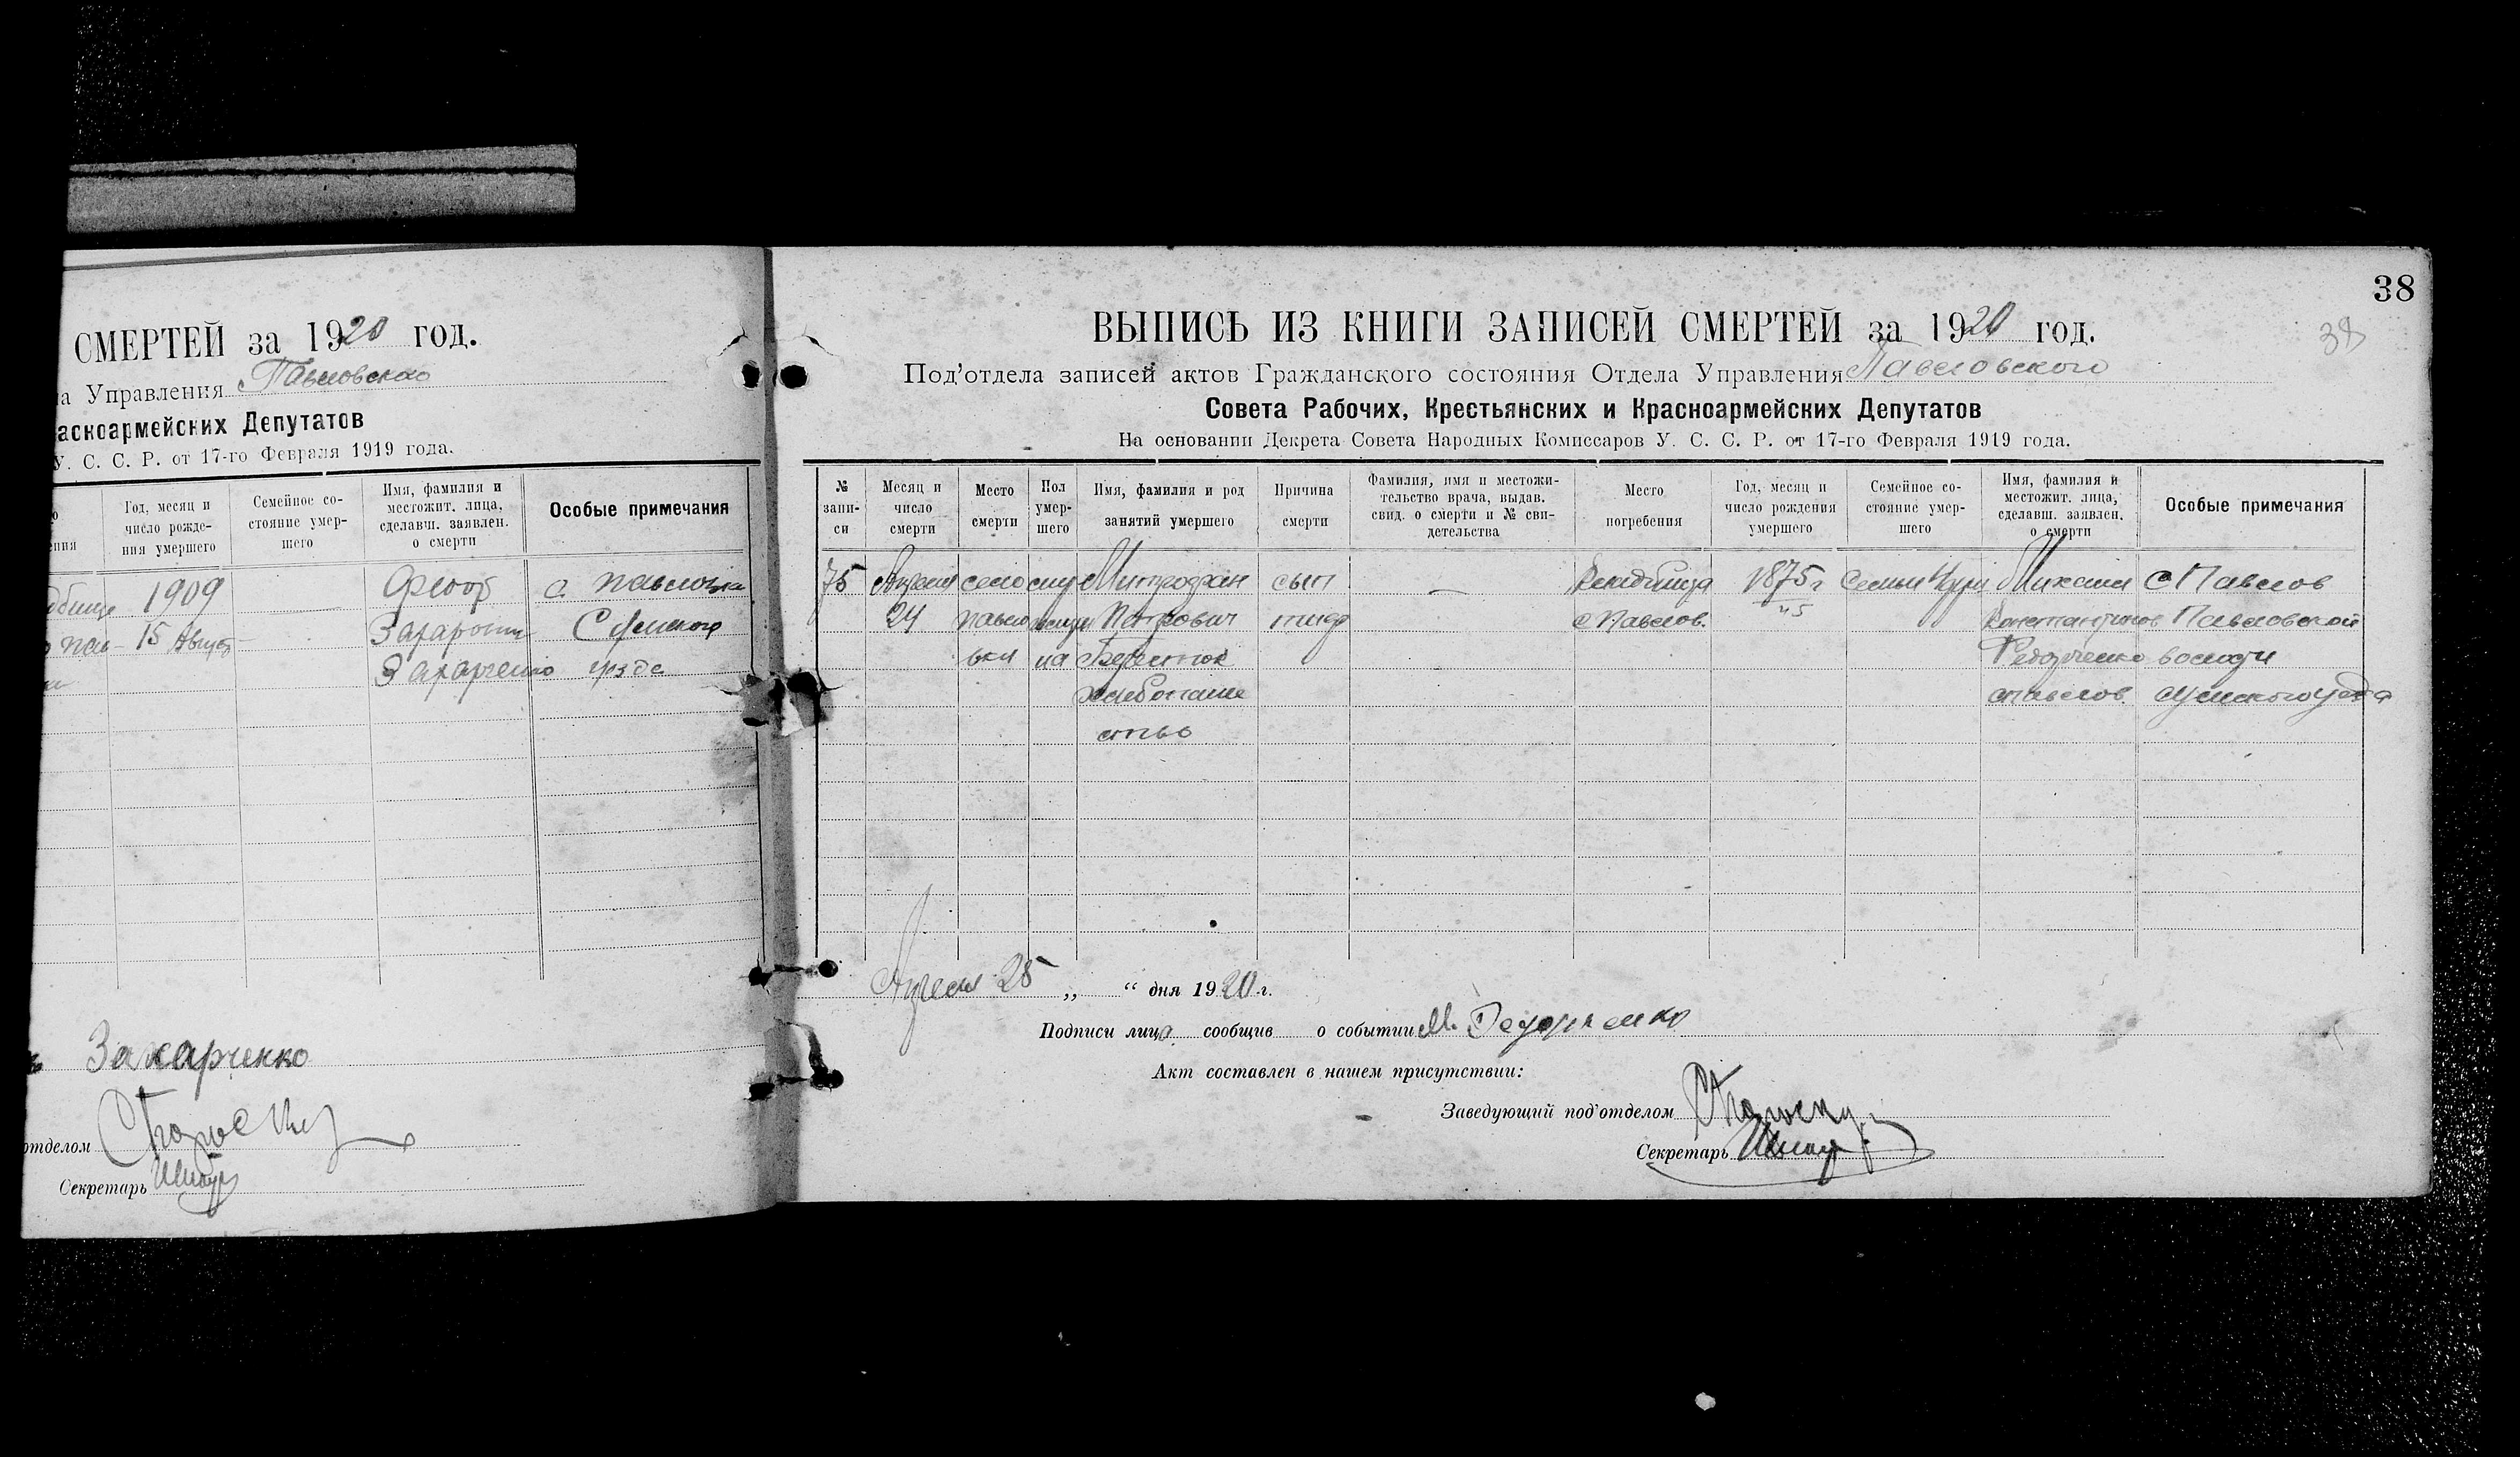 СМЕРТЕЙ за 1920 год.
а Управления Павловского
асноармейских Депутатов
У. С. С. Р. от 17-го Февраля 1919 года.
ения
Год, месяц и число рождения умершего
Семейное состояние умершего
Имя, фамилия и местожит. лица, сделавш. заявлен. о смерти
Особые примечания
1909
с Павловка
15 Август
Сумского
Захарченко
Захарченко
отделом
Секретарь
38
38
ВЫПИСЬ ИЗ КНИГИ ЗАПИСЕЙ СМЕРТЕЙ за 1920 год.
Под'отдела записей актов Гражданского состояния Отдела Управления Павловского
Совета Рабочих, Крестьянских и Красноармейских Депутатов
На основании Декрета Совета Народных Комиссаров У. С. С. Р. от 17-го Февраля 1919 года.
№ записи
Месяц и число смерти
Место смерти
Пол умершего
Имя, фамилия и род занятий умершего
Причина смерти
Фамилия, имя и местожительство врача, выдав. свид. о смерти и № свидетельства
Место погребения
Год, месяц и число рождения умершего
Семейное состояние умершего
Имя, фамилия и местожит. лица, сделавш. заявлен. о смерти
Особые примечания
75
Апреля
24
село
Павло
вки
Митрофан
Петрович
хлебопаше
ство
сып
тиф
Кладбища
с Павлов.
1875 г
45
Константинов
Федорченко
с Павлов.
с Павлов
Павловской
волости
Сумского уезда
Апреля 25 „ “ дня 1920 г.
Подписи лица сообщив о событии М. Федорченко
Акт составлен в нашем присутствии:
Заведующий под'отделом
Секретарь